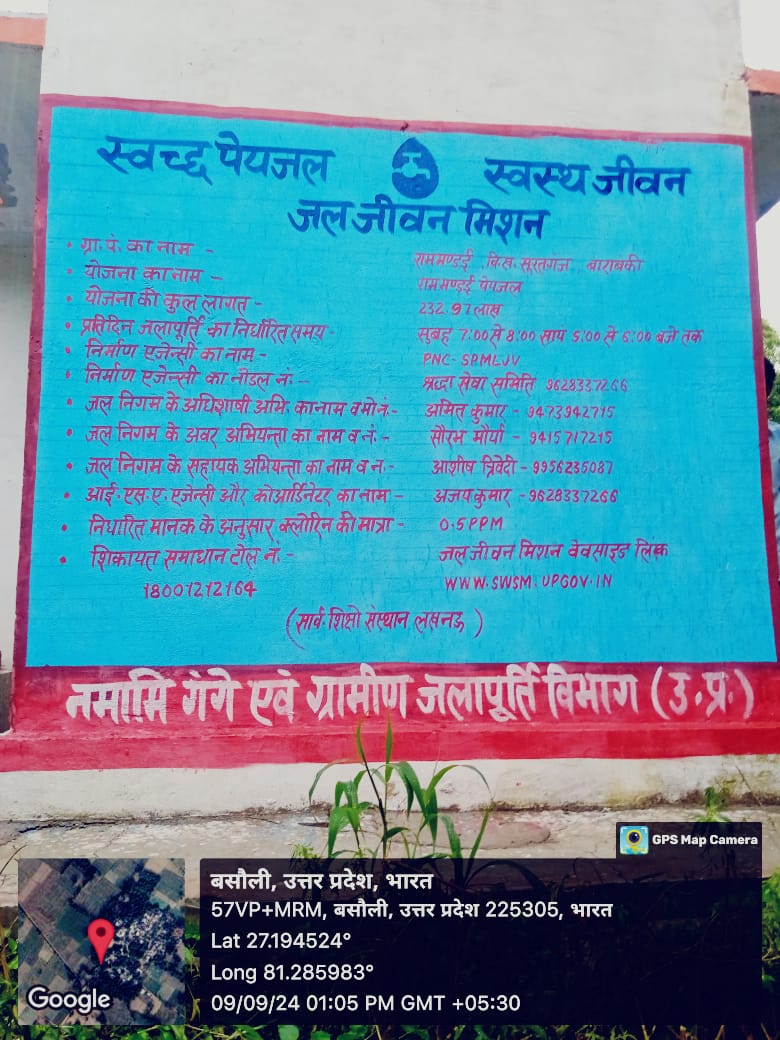 स्वच्छ पेयजल स्वस्थ जीवन
जल जीवन मिशन
• ग्रा. पं. का नाम - राममण्डई .वि.ख. सूरतगंज . बाराबंकी
• योजना का नाम - राममण्डई पेयजल
• योजना की कुल लागत - 232.97 लाख
• प्रतिदिन जलापूर्ति का निर्धारित समय - सुबह 7:00 से 8:00 सायं 5:00 से 6:00 बजे तक
• निर्माण एजेन्सी का नाम - PNC-SPMLJV
• निर्माण एजेन्सी का नोडल नं. - श्रद्धा सेवा समिति 9628337266
• जल निगम के अधिशाषी अभि. का नाम व मो नं.- अमित कुमार - 9473942715
• जल निगम के अवर अभियन्ता का नाम व नं.- सौरभ मौर्या - 9415717215
• जल निगम के सहायक अभियन्ता का नाम व न.- आशीष त्रिवेदी - 9956235087
• आई.एस.ए. एजेन्सी और कोआर्डिनेटर का नाम- अजय कुमार -9628337266
• निर्धारित मानक के अनुसार क्लोरिन की मात्रा - 0.5 PPM
• शिकायत समाधान टोल नं.- जल जीवन मिशन वेवसाइड लिंक
18001212164 WWW.SWSM.UPGOV.IN
(सार्व. शिक्षो संस्थान लखनऊ)
नमामि गंगे एवं ग्रामीण जलापूर्ति विभाग (उ.प्र.)
GPS Map Camera
बसौली, उत्तर प्रदेश, भारत
57VP+MRM, बसौली, उत्तर प्रदेश 225305, भारत
Lat 27.194524°
Long 81.285983°
09/09/24 01:05 PM GMT +05:30
Google